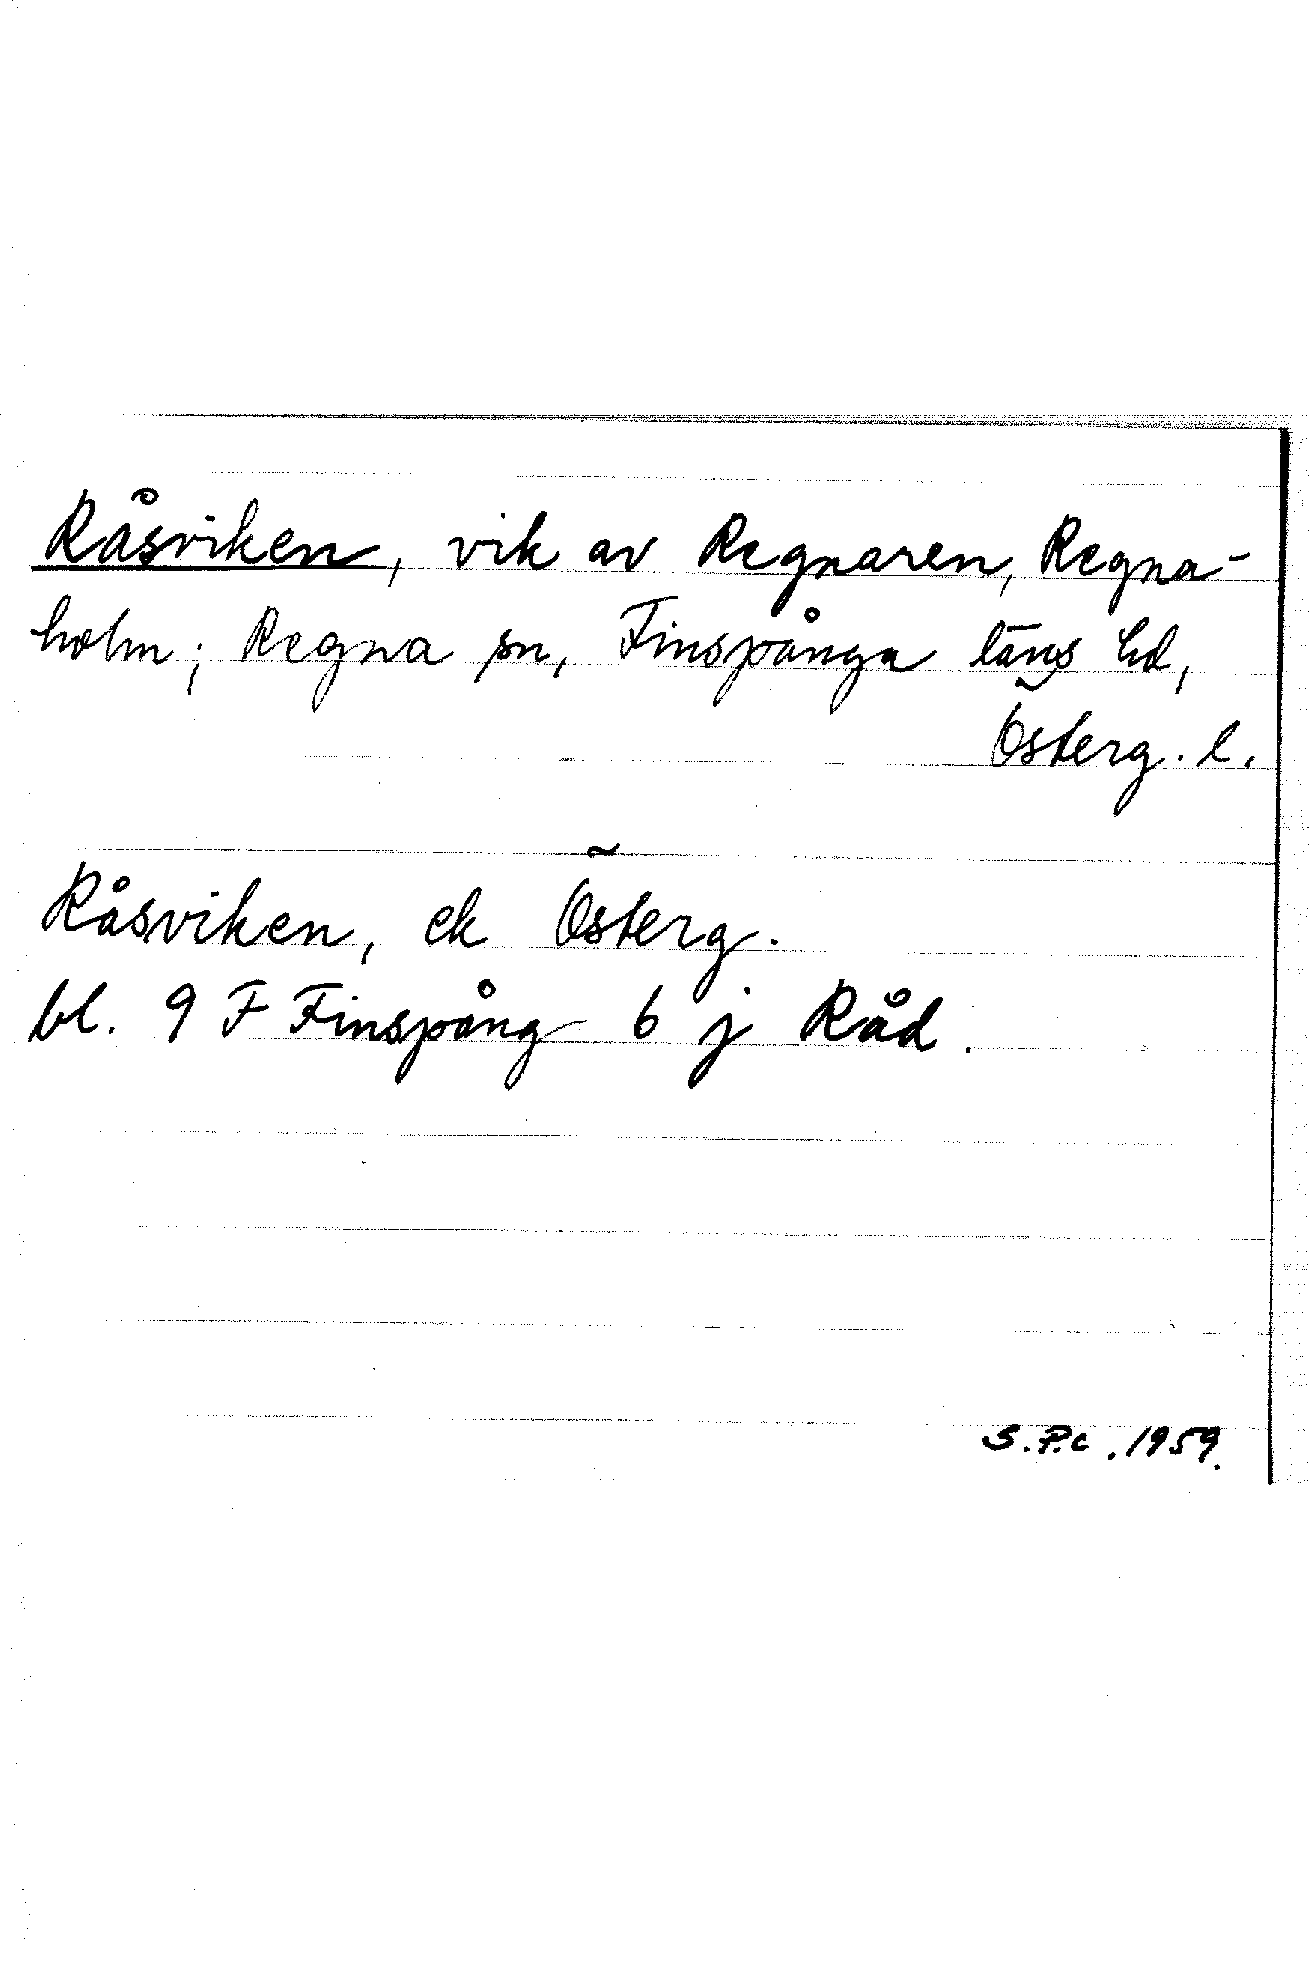 Råsviken, vik av Regnaren, Regna-
holm; Regna sn, Finspånga läns hd,
Österg. l.
Råsviken, ek Österg.
bl. 9 F Finspång 6 j Råd.
S.P.c. 1959.